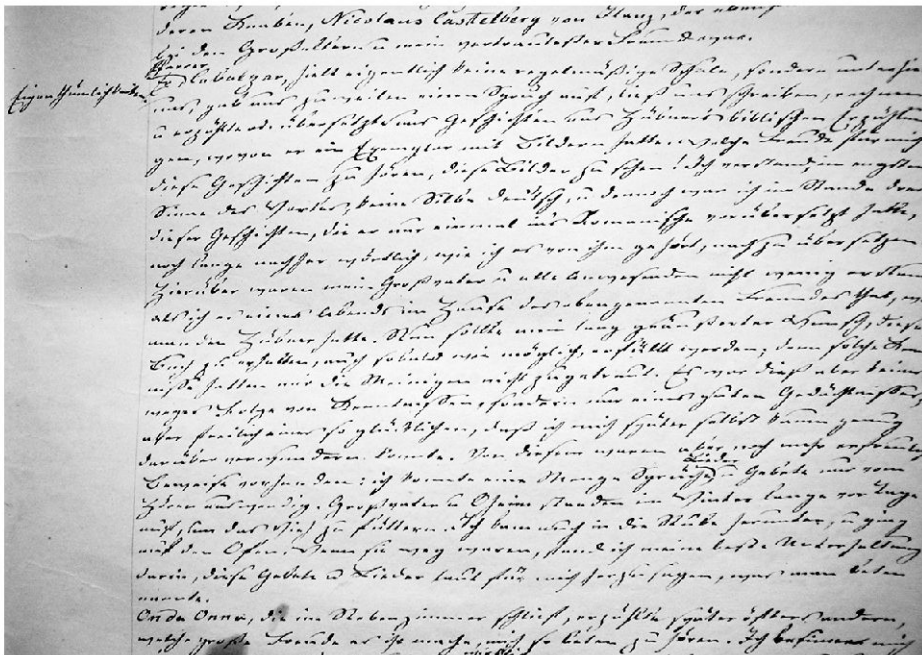 deren Knaben, Nicolaus Castelberg von Ilanz, der eben
bei den Großeltern u mein vertrautester Freund war.
Pfarrer
hielt eigentlich keine regelmäßige Schule, sondern unterhielt
Eigenthümlichkeiten.
uns, gab uns zuweilen einen Spruch auf, ließ uns schreiben, rechnen
u erzählte od. übersetzte uns Geschichten aus Hübners biblischen Erzählun
gen, wovon er ein Exemplar mit Bildern hatte. welche Freude für mich
diese Geschichten zu hören, diese Bilder zu sehen! Ich verstand, im engsten
Sinne des Wortes, keine Silbe deutsch, u dennoch war ich im Stande drei
dieser Geschichten, die er nur einmal ins Romanische vorübersetzt hatte,
noch lange nachher wörtlich, wie ich es von ihm gehört, nachzuübersetzen.
Hierüber waren mein Großvater u alle Anwesenden nicht wenig erstaunt
als ich es eines Abends im Hause des obengenannten Freundes that, wo
man den Hübner hatte. Nun sollte mein lang geäußerter Wunsch, dieses
Buch zu erhalten, auch sobald wie möglich, erfüllt werden; denn solche Kennt
nisse hatten mir die Meinigen nicht zugetraut. Es war dieß aber keines
weges Folge von Kenntnissen, sondern nur eines guten Gedächtnisses,
aber freilich eines so glücklichen, daß ich mich später selbst kaum genug
darüber verwundern konnte. Von diesem waren aber noch mehr erfreuliche
Beweise vorhanden: ich konnte eine Menge Sprüche, Lieder u Gebete nur vom
Hören auswendig. Großvater u Oheim standen im Winter lange vor Tage
auf, um das Vieh zu füttern. Ich kam auch in die Stube herunter, u ging
auf den Ofen. Wenn sie weg waren, fand ich meine beste Unterhaltung
darin, diese Gebete u Lieder laut für mich herzusagen, was man beten
nannte.
Onda Onna, die im Nebenzimmer schlief, erzählte später öfters andern,
welche große Freude es ihr mache, mich so beten zu hören. Ich besinne mich